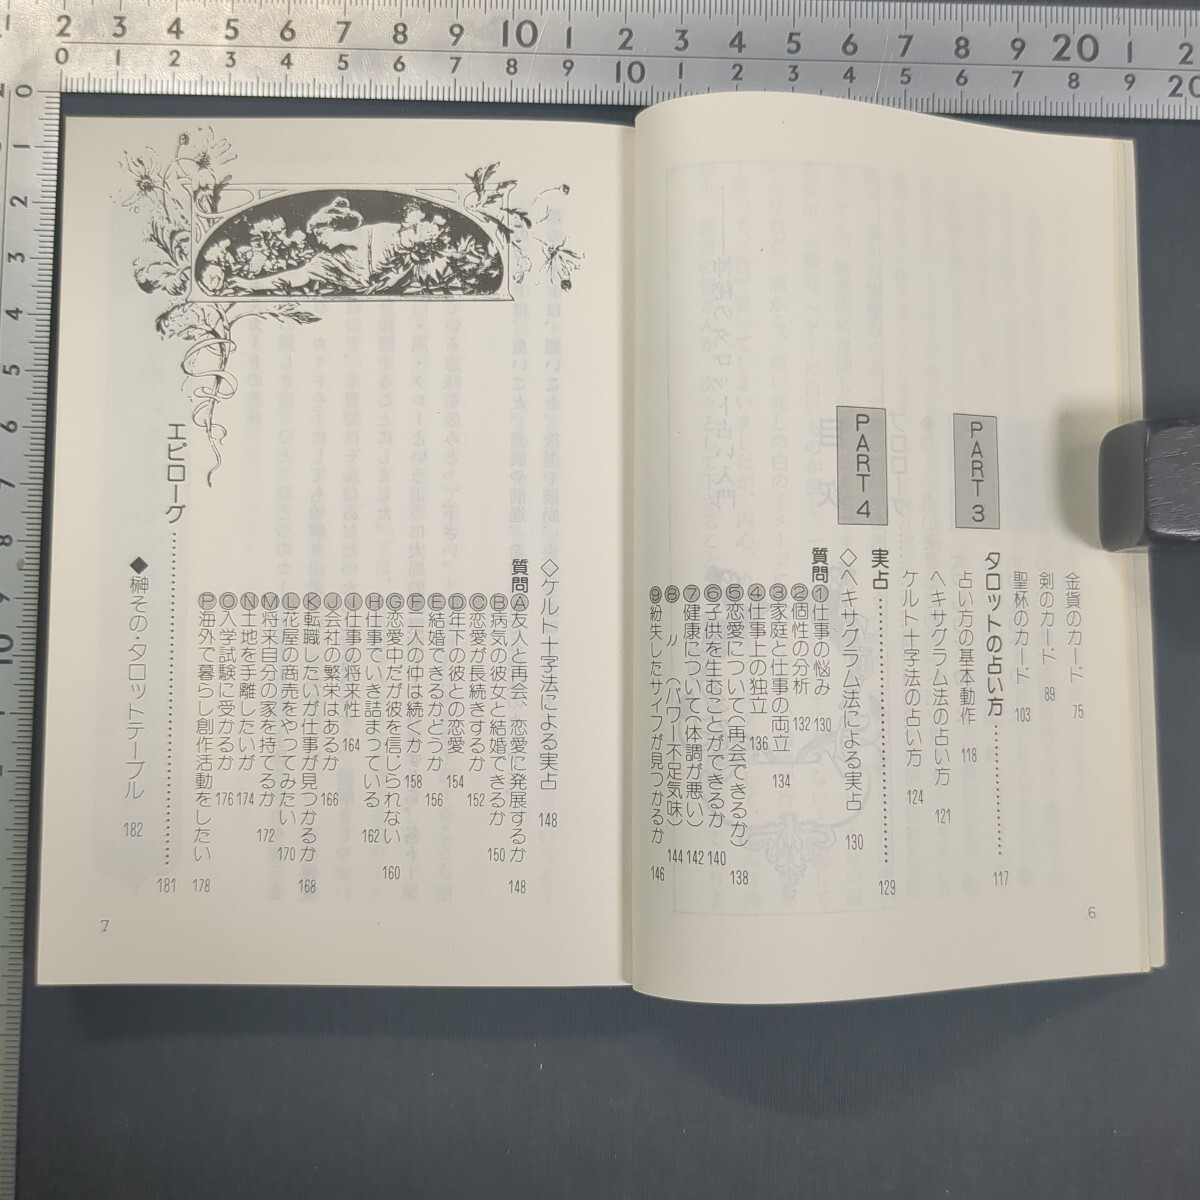 金貨のカード 75
剣のカード 89
聖杯のカード 103
PART3
タロットの占い方 117
占い方の基本動作 118
ヘキサグラム法の占い方 121
ケルト十字法の占い方 124
PART4
実占 129
◇ヘキサグラム法による実占 130
質問①仕事の悩み 130
②個性の分析 132
③家庭と仕事の両立 134
④仕事上の独立 136
⑤恋愛について(再会できるか) 138
⑥子供を生むことができるか 140
⑦健康について(体調が悪い) 142
⑧ 〃 (パワー不足気味) 144
⑨紛失したサイフが見つかるか 146
6
◇ケルト十字法による実占 148
質問Ⓐ友人と再会、恋愛に発展するか 148
Ⓑ病気の彼女と結婚できるか 150
Ⓒ恋愛が長続きするか 152
Ⓓ年下の彼との恋愛 154
Ⓔ結婚できるかどうか 156
Ⓕ二人の仲は続くか 158
Ⓖ恋愛中だが彼を信じられない 160
Ⓗ仕事でいき詰まっている 162
Ⓘ仕事の将来性 164
Ⓙ会社の繁栄はあるか 166
Ⓚ転職したいが仕事が見つかるか 168
Ⓛ花屋の商売をやってみたい 170
Ⓜ将来自分の家を持てるか 172
Ⓝ土地を手離したいが 174
Ⓞ入学試験に受かるか 176
Ⓟ海外で暮らし創作活動をしたい 178
エピローグ 181
◆榊その・タロットテーブル 182
7